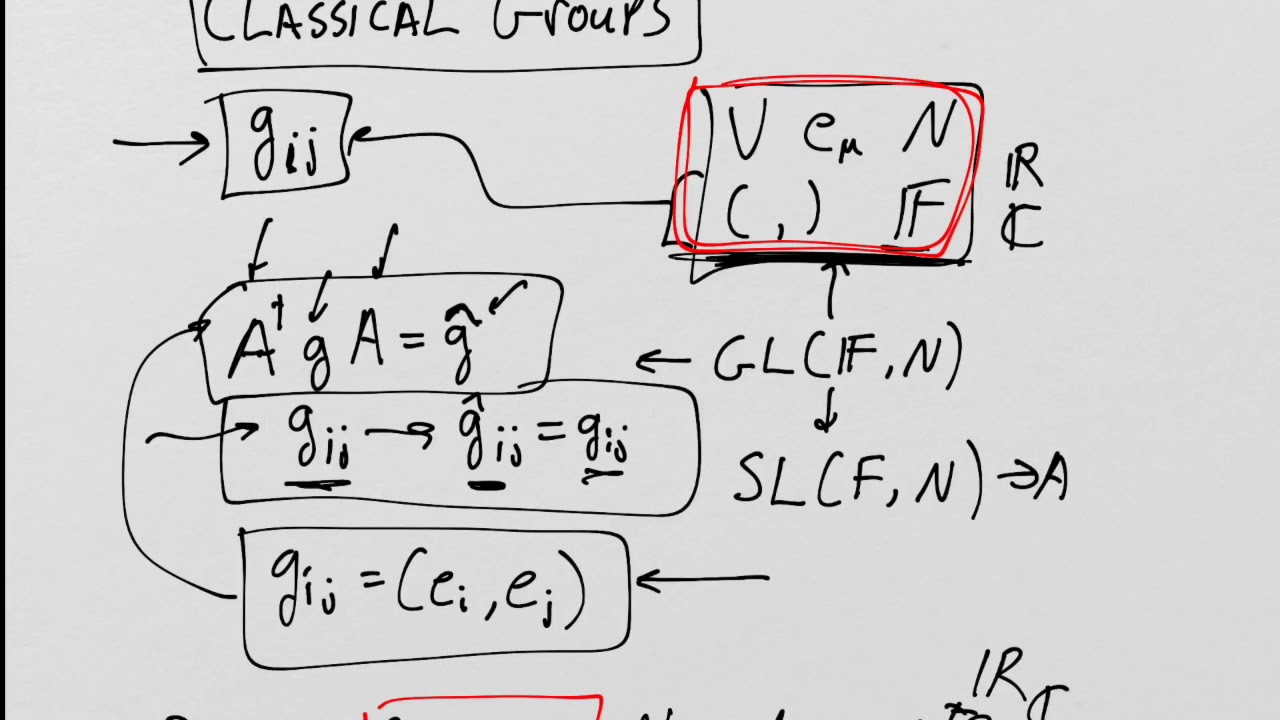 CLASSICAL Groups
g_{ij}
V e_μ N
( , ) 𝔽
ℝ
ℂ
A† g A = ĝ
GL(𝔽, N)
g_{ij} → ĝ_{ij} = g_{ij}
SL(F, N) → A
g_{ij} = (e_i, e_j)
ℝ
ℂ